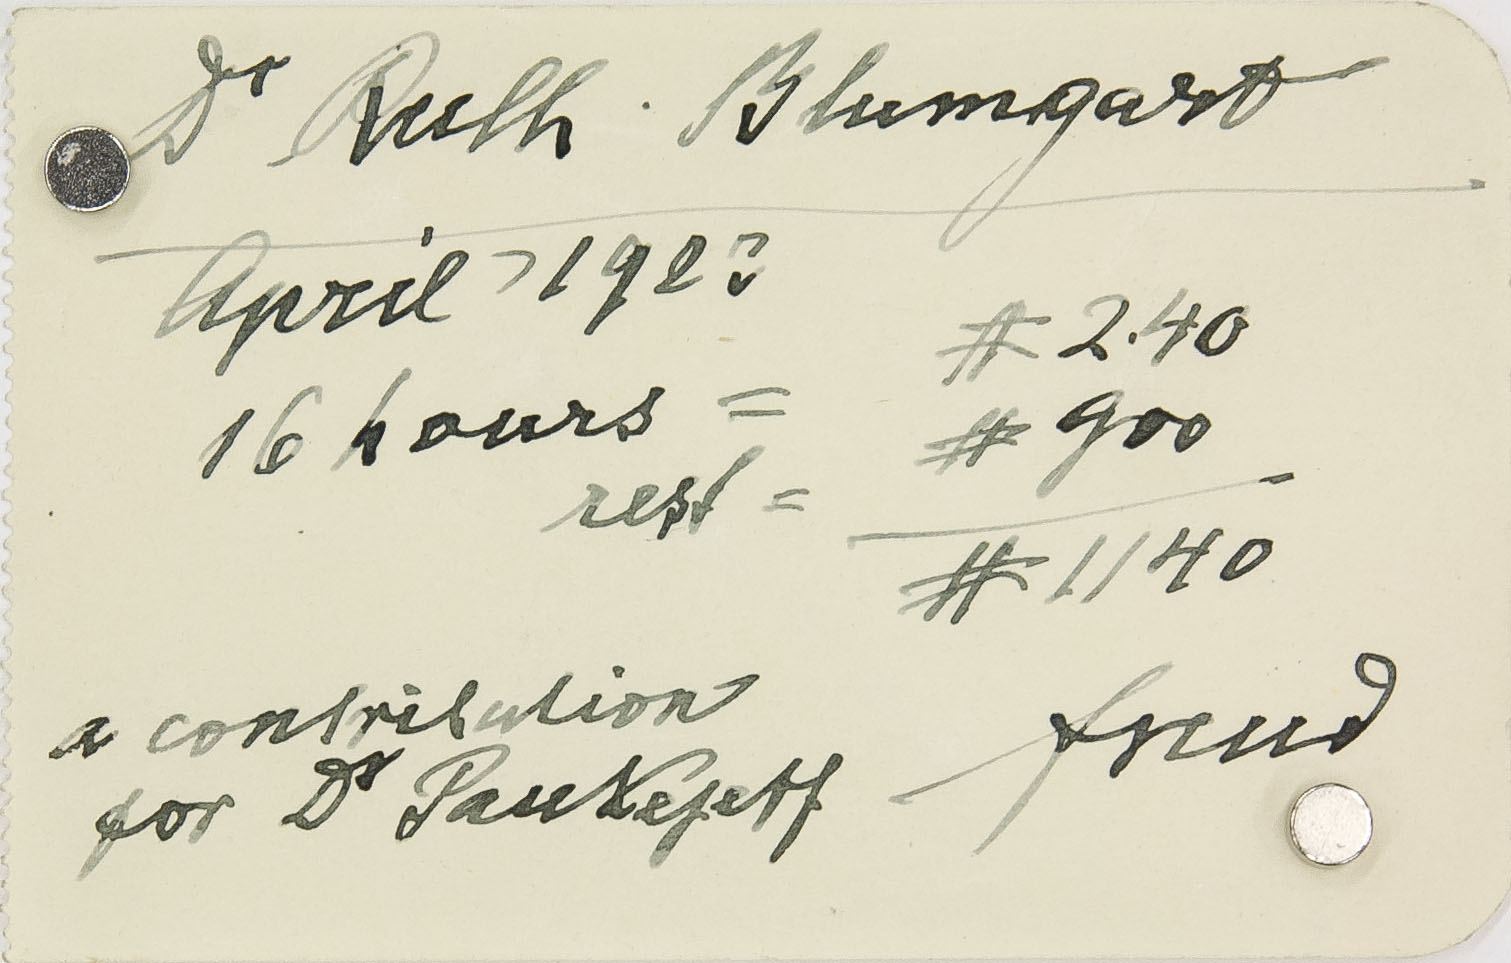 Dr Ruth Blumgart
April 192?
16 hours = # 2.40
rest = # 900
# 1140
a contribution
for Dr Pankejeff
Freud